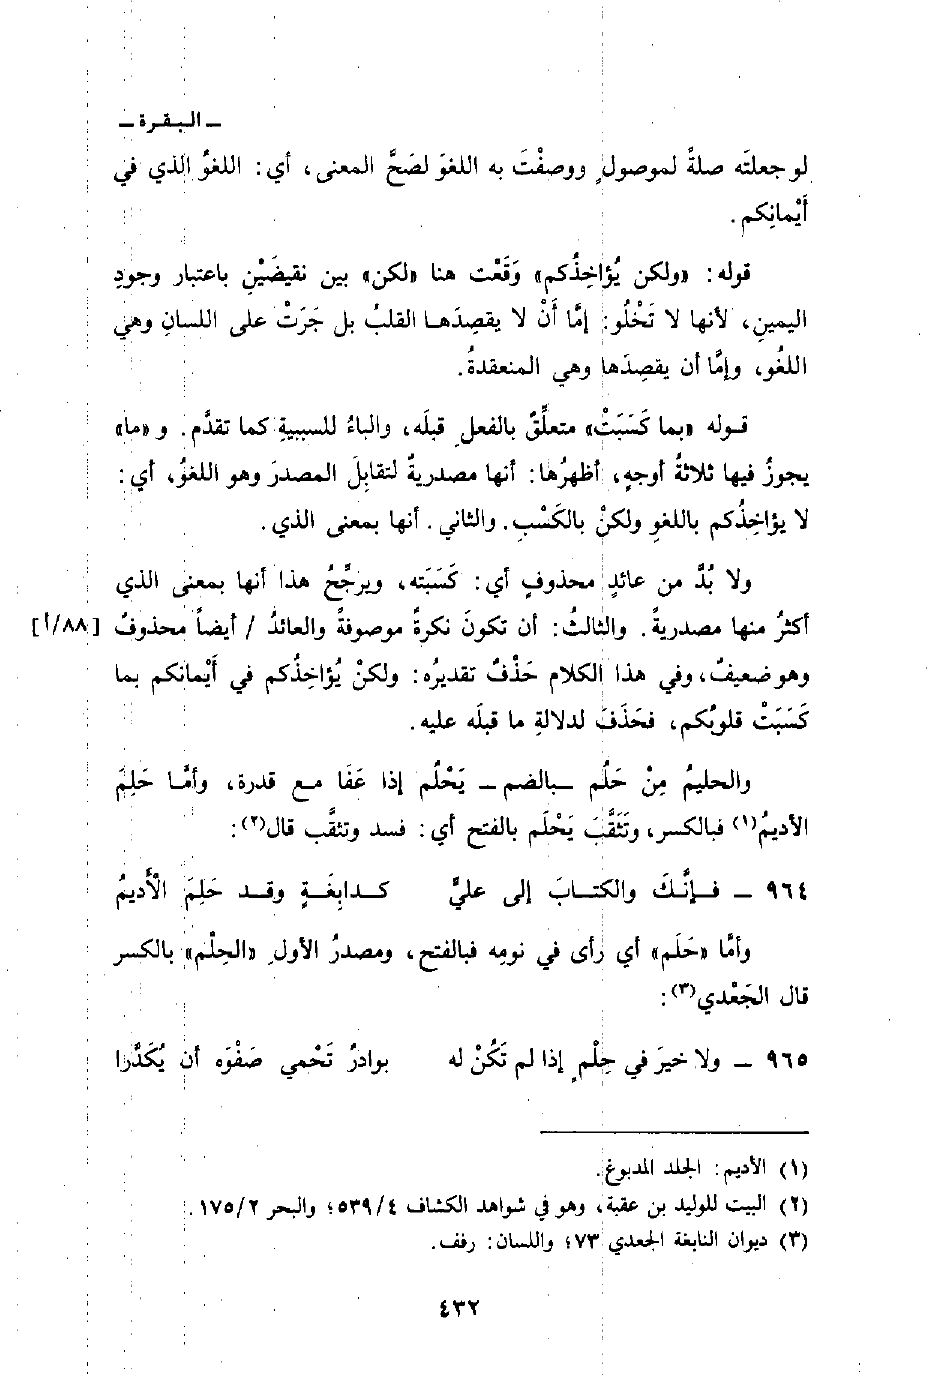 ـ البقرة ـ
لو جعلتَه صلةً لموصولٍ ووصفْتَ به اللغوَ لصَحَّ المعنى، أي: اللغوُ الذي في
أَيْمانِكم.
قوله: «ولكن يُؤاخِذُكم» وَقَعَتْ هنا «لكن» بين نقيضَيْنِ باعتبار وجودِ
اليمينِ، لأنها لا تَخْلُو: إمَّا أَنْ لا يقصِدَهـا القلبُ بل جَرَتْ على اللسانِ وهي
اللغُو، وإمَّا أن يقصِدَها وهي المنعقدةُ.
قـوله «بما كَسَبَتْ» متعلِّقٌ بالفعلِ قبلَه، والباءُ للسببيةِ كما تقدَّم. و «ما»
يجوزُ فيها ثلاثةُ أوجهٍ، أظهرُها: أنها مصدريةٌ لتقابِلَ المصدرَ وهو اللغوُ، أي:
لا يؤاخِذُكم باللغوِ ولكنْ بالكَسْبِ. والثاني. أنها بمعنى الذي.
ولا بُدَّ من عائدٍ محذوفٍ أي: كَسَبَته، ويرجِّحُ هذا أنها بمعنى الذي
أكثرُ منها مصدريةً. والثالثُ: أن تكونَ نكرةً موصوفةً والعائدُ / أيضاً محذوفٌ [٨٨/أ]
وهو ضعيفٌ، وفي هذا الكلام حَذْفٌ تقديرُه: ولكنْ يُؤاخِذُكم في أَيْمانكم بما
كَسَبَتْ قلوبُكم، فحَذَفَ لدلالةِ ما قبلَه عليه.
والحليمُ مِنْ حَلُم ـ بالضم ـ يَحْلُم إذا عَفَا مـع قدرة، وأمَّـا حَلِمَ
الأديمُ(١) فبالكسر، وتَثَقَّبَ يَحْلَم بالفتح أي: فسد وتثقَّب قال(٢):
٩٦٤ ـ فـإنَّـكَ والكتـابَ إلى عليٍّ كـدابِغَـةٍ وقـد حَلِمَ الْأَديمُ
وأمَّا «حَلَم» أي رأى في نومِه فبالفتح، ومصدرُ الأولِ «الحِلْم» بالكسر
قال الجَعْدي(٣):
٩٦٥ ـ ولا خيرَ في حِلْمٍ إذا لم تَكُنْ له بوادرُ تَحْمي صَفْوَه أن يُكَدَّرا
(١) الأديم: الجلد المدبوغ.
(٢) البيت للوليد بن عقبة، وهو في شواهد الكشاف ٥٣٩/٤؛ والبحر ١٧٥/٢.
(٣) ديوان النابغة الجعدي ٧٣؛ واللسان: رفف.
٤٣٢